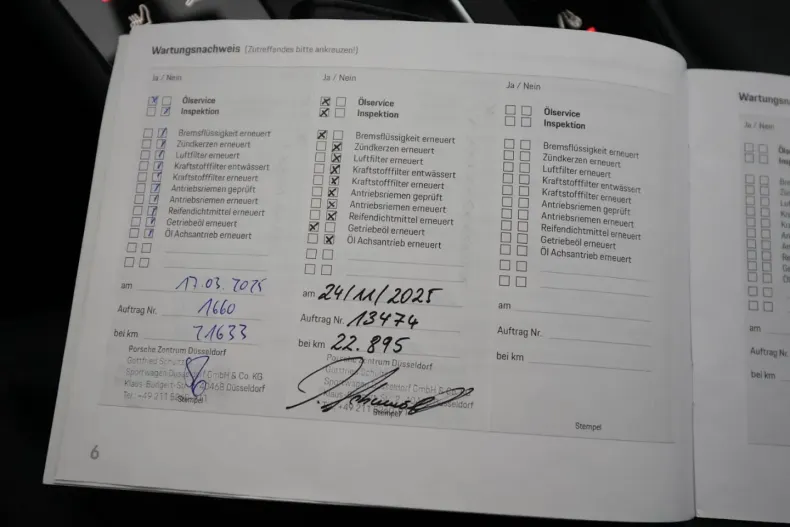 Wartungsnachweis [Zutreffendes bitte ankreuzen!]
Ja / Nein
Ölservice
Inspektion
Bremsflüssigkeit erneuert
Zündkerzen erneuert
Luftfilter erneuert
Kraftstofffilter entwässert
Kraftstofffilter erneuert
Antriebsriemen geprüft
Antriebsriemen erneuert
Reifendichtmittel erneuert
Getriebeöl erneuert
Öl Achsantrieb erneuert
am 17.03.2025
Auftrag Nr. 1660
bei km 21633
Porsche Zentrum Düsseldorf
Gottfried Schultz
Sportwagen Düsseldorf GmbH & Co. KG
40468 Düsseldorf
Tel.: +49 211
Stempel
Ja / Nein
Ölservice
Inspektion
Bremsflüssigkeit erneuert
Zündkerzen erneuert
Luftfilter erneuert
Kraftstofffilter entwässert
Kraftstofffilter erneuert
Antriebsriemen geprüft
Antriebsriemen erneuert
Reifendichtmittel erneuert
Getriebeöl erneuert
Öl Achsantrieb erneuert
am 24/11/2025
Auftrag Nr. 13474
bei km 22.895
Porsche Zentrum Düsseldorf
Gottfried
Sportwagen GmbH & Co.
Düsseldorf
+49 211
Stempel
Ja / Nein
Ölservice
Inspektion
Bremsflüssigkeit erneuert
Zündkerzen erneuert
Luftfilter erneuert
Kraftstofffilter entwässert
Kraftstofffilter erneuert
Antriebsriemen geprüft
Antriebsriemen erneuert
Reifendichtmittel erneuert
Getriebeöl erneuert
Öl Achsantrieb erneuert
am
Auftrag Nr.
bei km
Stempel
6
Wartungsn
Ja / Nein
am
Auftrag Nr
bei km